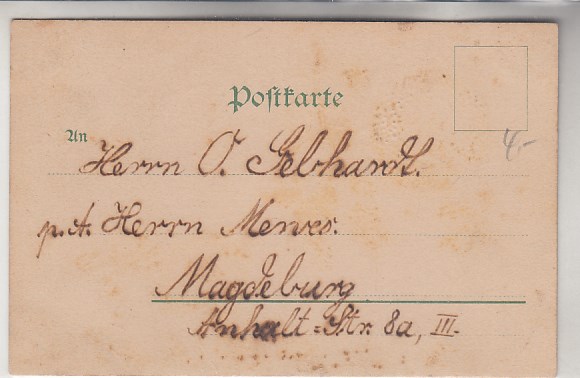 Postkarte
4-
An
Herrn O. Gebhardt.
p. A. Herrn Mewes.
Magdeburg
Anhalt=Str. 8a, III.